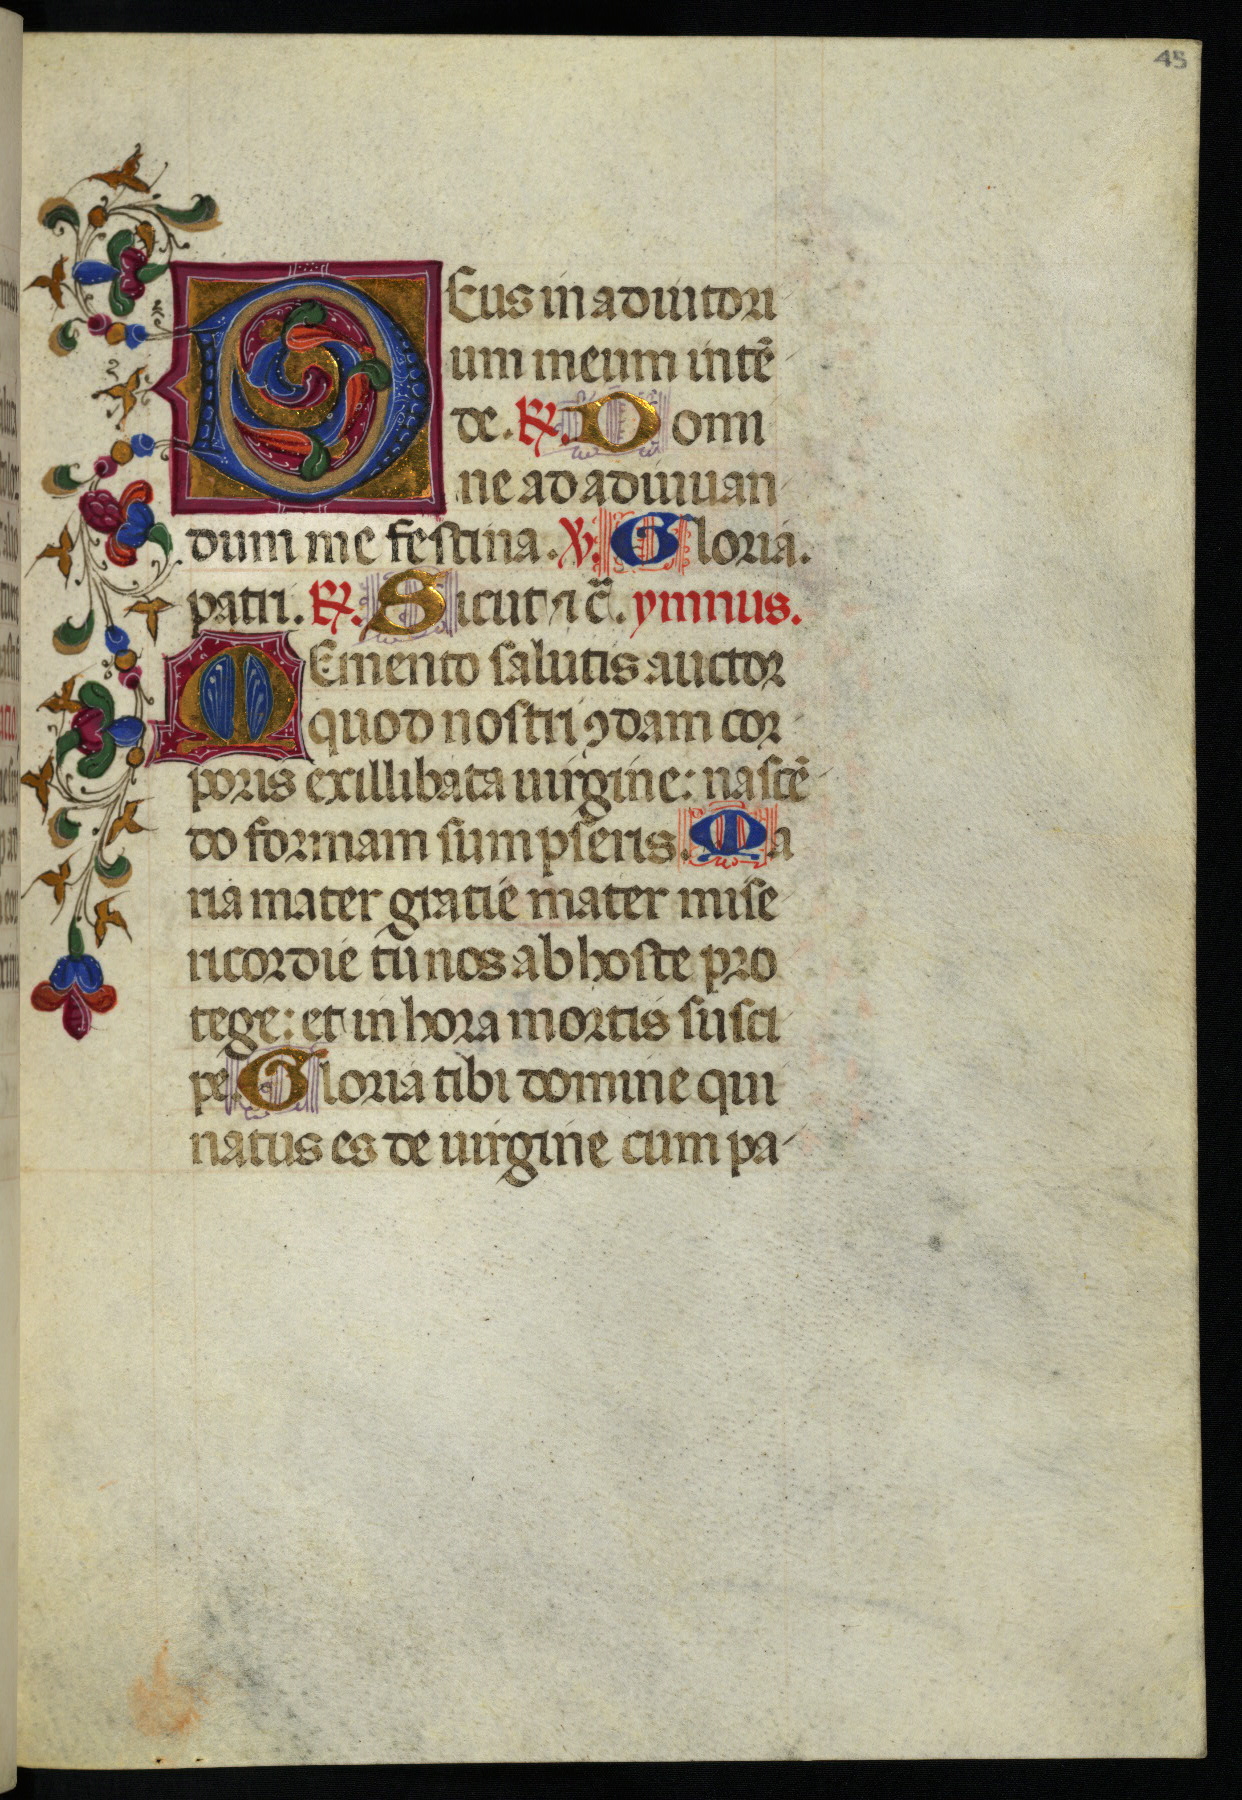 45
DEus in adiutori
um meum intē
de. ℟. Domi
ne ad adiuuan
dum me festina. ℣. Gloria.
patri. ℟. Sicut ⁊ c̄. ymnus.
MEmento salutis auctor
quod nostri ꝯdam cor
poris ex illibata uirgine: nascē
do formam sumpseris. Ma
ria mater gratie mater mise
ricordie tu nos ab hoste pro
tege: et in hora mortis susci
pe Gloria tibi domine qui
natus es de uirgine cum pa